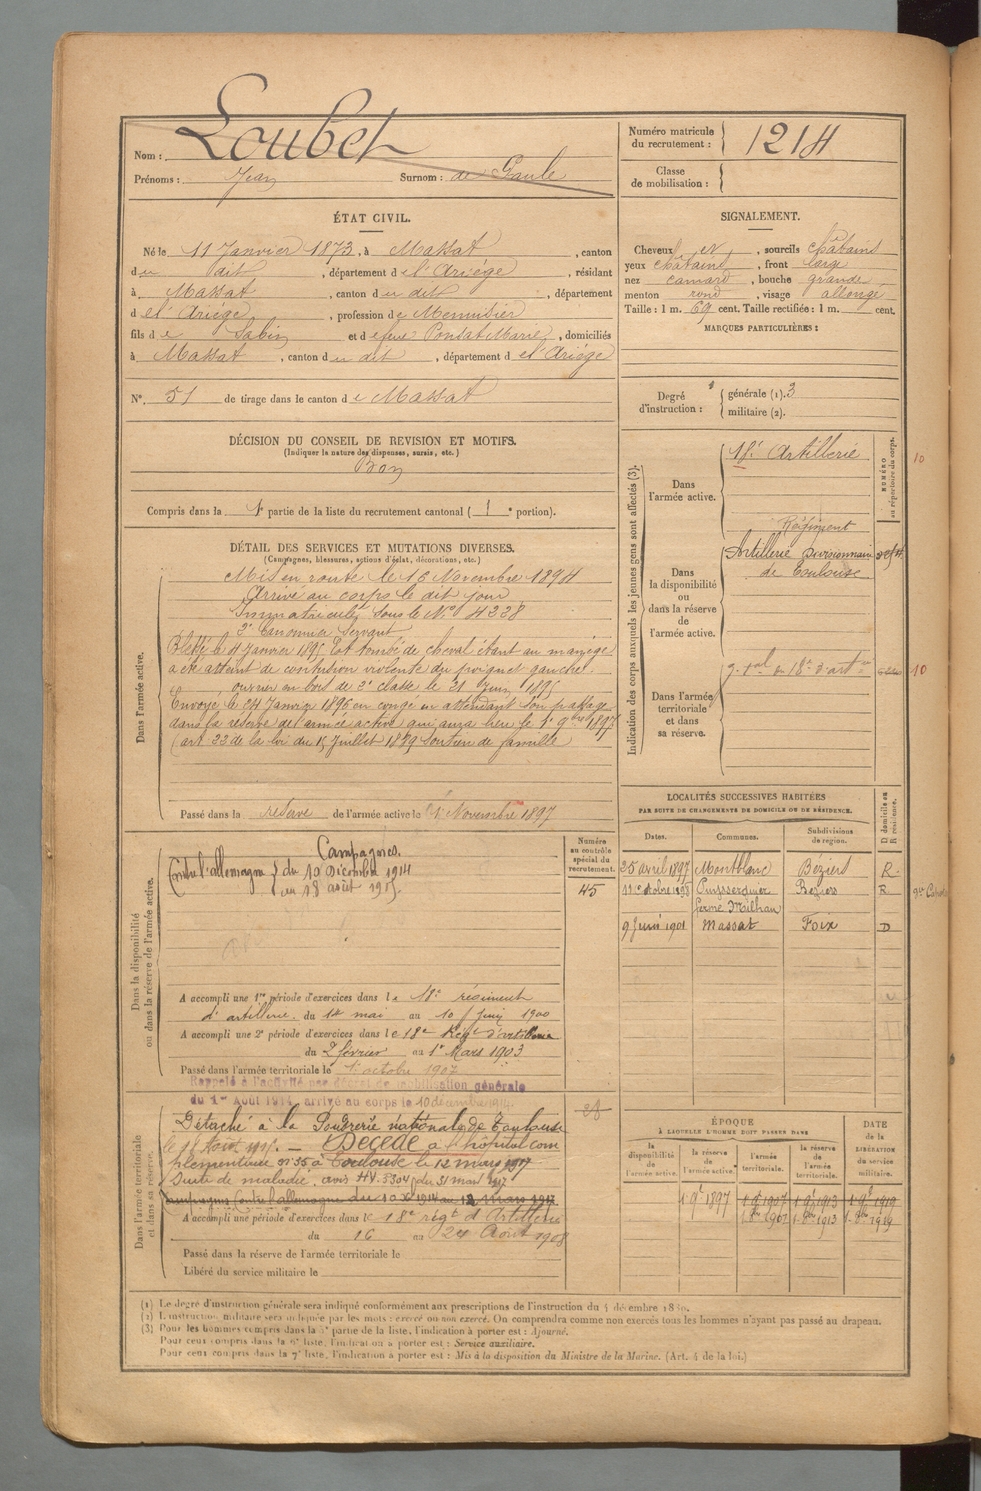 Nom : Loubet
Prénoms : Jean Surnom : de Paule
Numéro matricule du recrutement : 1214
Classe de mobilisation :
ÉTAT CIVIL.
Né le 11 Janvier 1873, à Massat, canton
du dit, département de l'Ariège, résidant
à Massat, canton du dit, département
de l'Ariège, profession de Menuisier
fils de Sabin et de feue Ponsat Marie, domiciliés
à Massat, canton du dit, département de l'Ariège
N°. 51 de tirage dans le canton de Massat
SIGNALEMENT.
Cheveux et, sourcils châtains
yeux châtains, front large
nez camard, bouche grande
menton rond, visage allongé
Taille : 1 m. 69 cent. Taille rectifiée : 1 m. cent.
MARQUES PARTICULIÈRES :
Degré d'instruction : générale (1). 3
militaire (2).
DÉCISION DU CONSEIL DE REVISION ET MOTIFS.
(Indiquer la nature des dispenses, sursis, etc.)
Bon
Compris dans la 1e partie de la liste du recrutement cantonal ( 1 e portion).
DÉTAIL DES SERVICES ET MUTATIONS DIVERSES.
(Campagnes, blessures, actions d'éclat, décorations, etc.)
Dans l'armée active.
Mis en route le 16 Novembre 1894
Arrivé au corps le dit jour
Immatriculé sous le No 4238
2e Canonnier Servant
Blessé le 4 Janvier 1895 Est tombé de cheval étant au manège
a été atteint de contusion violente du poignet gauche.
ouvrier en bois de 2e classe le 21 Juin 1895
Envoyé le 24 Janvier 1896 en congé en attendant son passage
dans la réserve de l'armée active qui aura lieu le 1er 9bre 1897
(art. 22 de la loi du 15 Juillet 1889 Soutien de famille
Passé dans la réserve de l'armée active le 1er Novembre 1897
Indication des corps auxquels les jeunes gens sont affectés (3).
NUMÉRO au répertoire du corps.
Dans l'armée active.
18e Artillerie
10
Dans la disponibilité ou dans la réserve de l'armée active.
Régiment
Artillerie Divisionnaire
de Toulouse
Dans l'armée territoriale et dans sa réserve.
10
LOCALITÉS SUCCESSIVES HABITÉES
PAR SUITE DE CHANGEMENTS DE DOMICILE OU DE RÉSIDENCE.
Dates. Communes. Subdivisions de region. D domicile ou R résidence.
25 avril 1897 Montblanc Béziers R.
11 octobre 1898 Puisserguier Beziers R
ferme Milhau
9 Juin 1901 Massat Foix D
Dans la disponibilité ou dans la réserve de l'armée active.
Numéro au contrôle spécial du recrutement.
45
Campagnes.
Contre l'allemagne du 10 Décembre 1914
au 18 août 1915.
A accompli une 1re période d'exercices dans le 18e regiment
d'artillerie du 14 mai au 10 Juin 1900
A accompli une 2e période d'exercices dans le 18e Régt d'artillerie
du 2 février au 1er Mars 1903
Passé dans l'armée territoriale le 1er octobre 1907
Rappelé à l'activité par décret de mobilisation générale
du 1er Août 1914, arrivé au corps le 10 décembre 1914.
Dans l'armée territoriale et dans sa réserve.
Détaché à la Poudrerie nationale de Toulouse
le 18 Août 1915. — Décédé à l'hôpital com
plémentaire n° 35 à Toulouse le 12 mars 1917
Suite de maladie. avis du 31 mars 1917
Campagnes Contre l'allemagne du 10 Xe 1914 au 12 Mars 1917
A accompli une période d'exercices dans le 18e régt d'Artillerie
du 16 au 24 Août 1908
Passé dans la réserve de l'armée territoriale le
Libéré du service militaire le
ÉPOQUE
À LAQUELLE L'HOMME DOIT PASSER DANS
la disponibilité de l'armée active. la réserve de l'armée active. l'armée territoriale. la réserve de l'armée territoriale.
DATE de la LIBÉRATION du service militaire.
1er 9e 1897 1er 9e 1907 1er 9e 1913 1er 9e 1919
1er 8bre 1907 1er 8bre 1913 1er 8bre 1919
(1) Le degré d'instruction générale sera indiqué conformément aux prescriptions de l'instruction du 4 décembre 1889.
(2) L'instruction militaire sera indiquée par les mots : exercé ou non exercé. On comprendra comme non exercés tous les hommes n'ayant pas passé au drapeau.
(3) Pour les hommes compris dans la 5e partie de la liste, l'indication à porter est : Ajourné.
Pour ceux compris dans la 6e liste, l'indication à porter est : Service auxiliaire.
Pour ceux compris dans la 7e liste, l'indication à porter est : Mis à la disposition du Ministre de la Marine. (Art. 4 de la loi.)